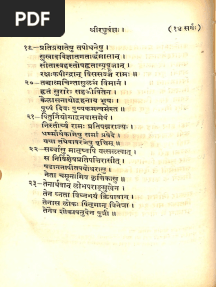 PDF
श्रीरघुवंशः ।
(१४ सर्गः)
१९–प्रतिप्रयातेषु तपोधनेषु
सुखादविज्ञातगतार्द्धमासान् ।
सीतास्वहस्तोपहृताग्र्यपूजान्
रक्षःकपीन्द्रान् विससर्ज रामः ॥
२०–तच्चात्मचिन्तासुलभं विमानं
हृतं सुरारेः सह जीवितेन ।
कैलासनाथोद्वहनाय भूयः
पुष्पं दिवः पुष्पकमन्वमंस्त ॥
२१–पितुर्नियोगाद्वनवासमेवं
निस्तीर्य रामः प्रतिपन्नराज्यः ।
धर्मार्थकामेषु समां प्रपेदे
यथा तथैवावरजेषु वृत्तिम् ॥
२२–सर्वासु मातृष्वपि वत्सलत्वात्
स निर्विशेषप्रतिपत्तिरासीत् ।
षडाननापीतपयोधरासु
नेता चमूनामिव कृत्तिकासु ॥
२३–तेनार्थवान् लोभपराङ्मुखेन
तेन घ्नता विघ्नभयं क्रियावान् ।
तेनास लोकः पितृमान् विनेत्रा
तेनैव शोकापनुदेन पुत्री ॥